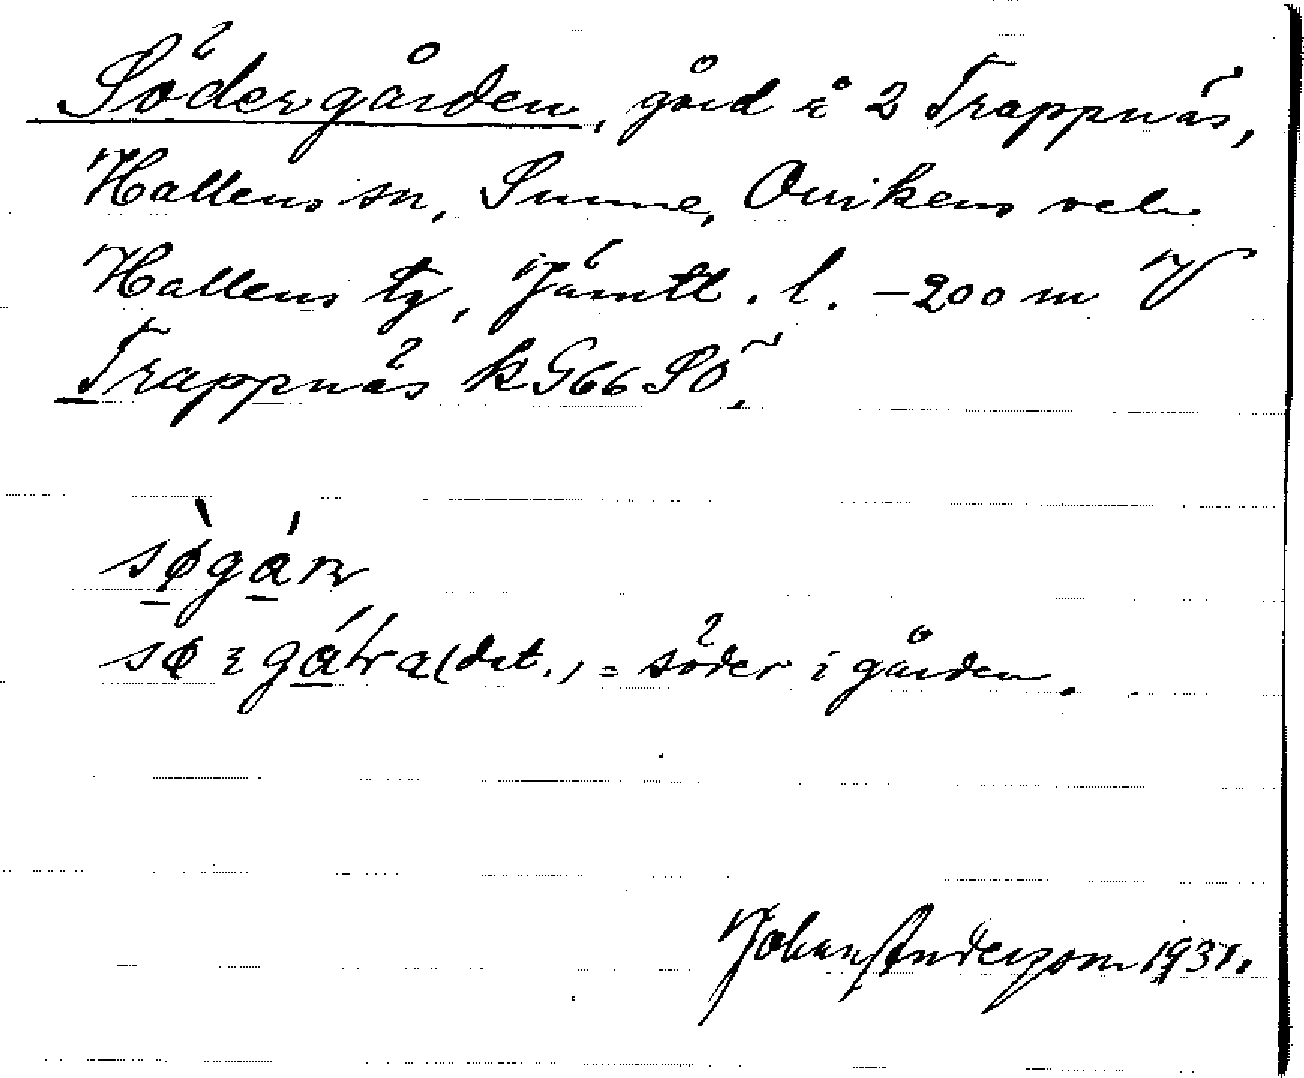 Södergården, gård å 2 Trappnäs,
Hallens sn, Sunne, Ovikens och
Hallens tg, Jämtl. l. –200 m V
Trappnäs k G66 SÖ.
sø̀gárn
søʀgáʈɳa (dat.) = söder i gården.
Johan Anderzon 1931.